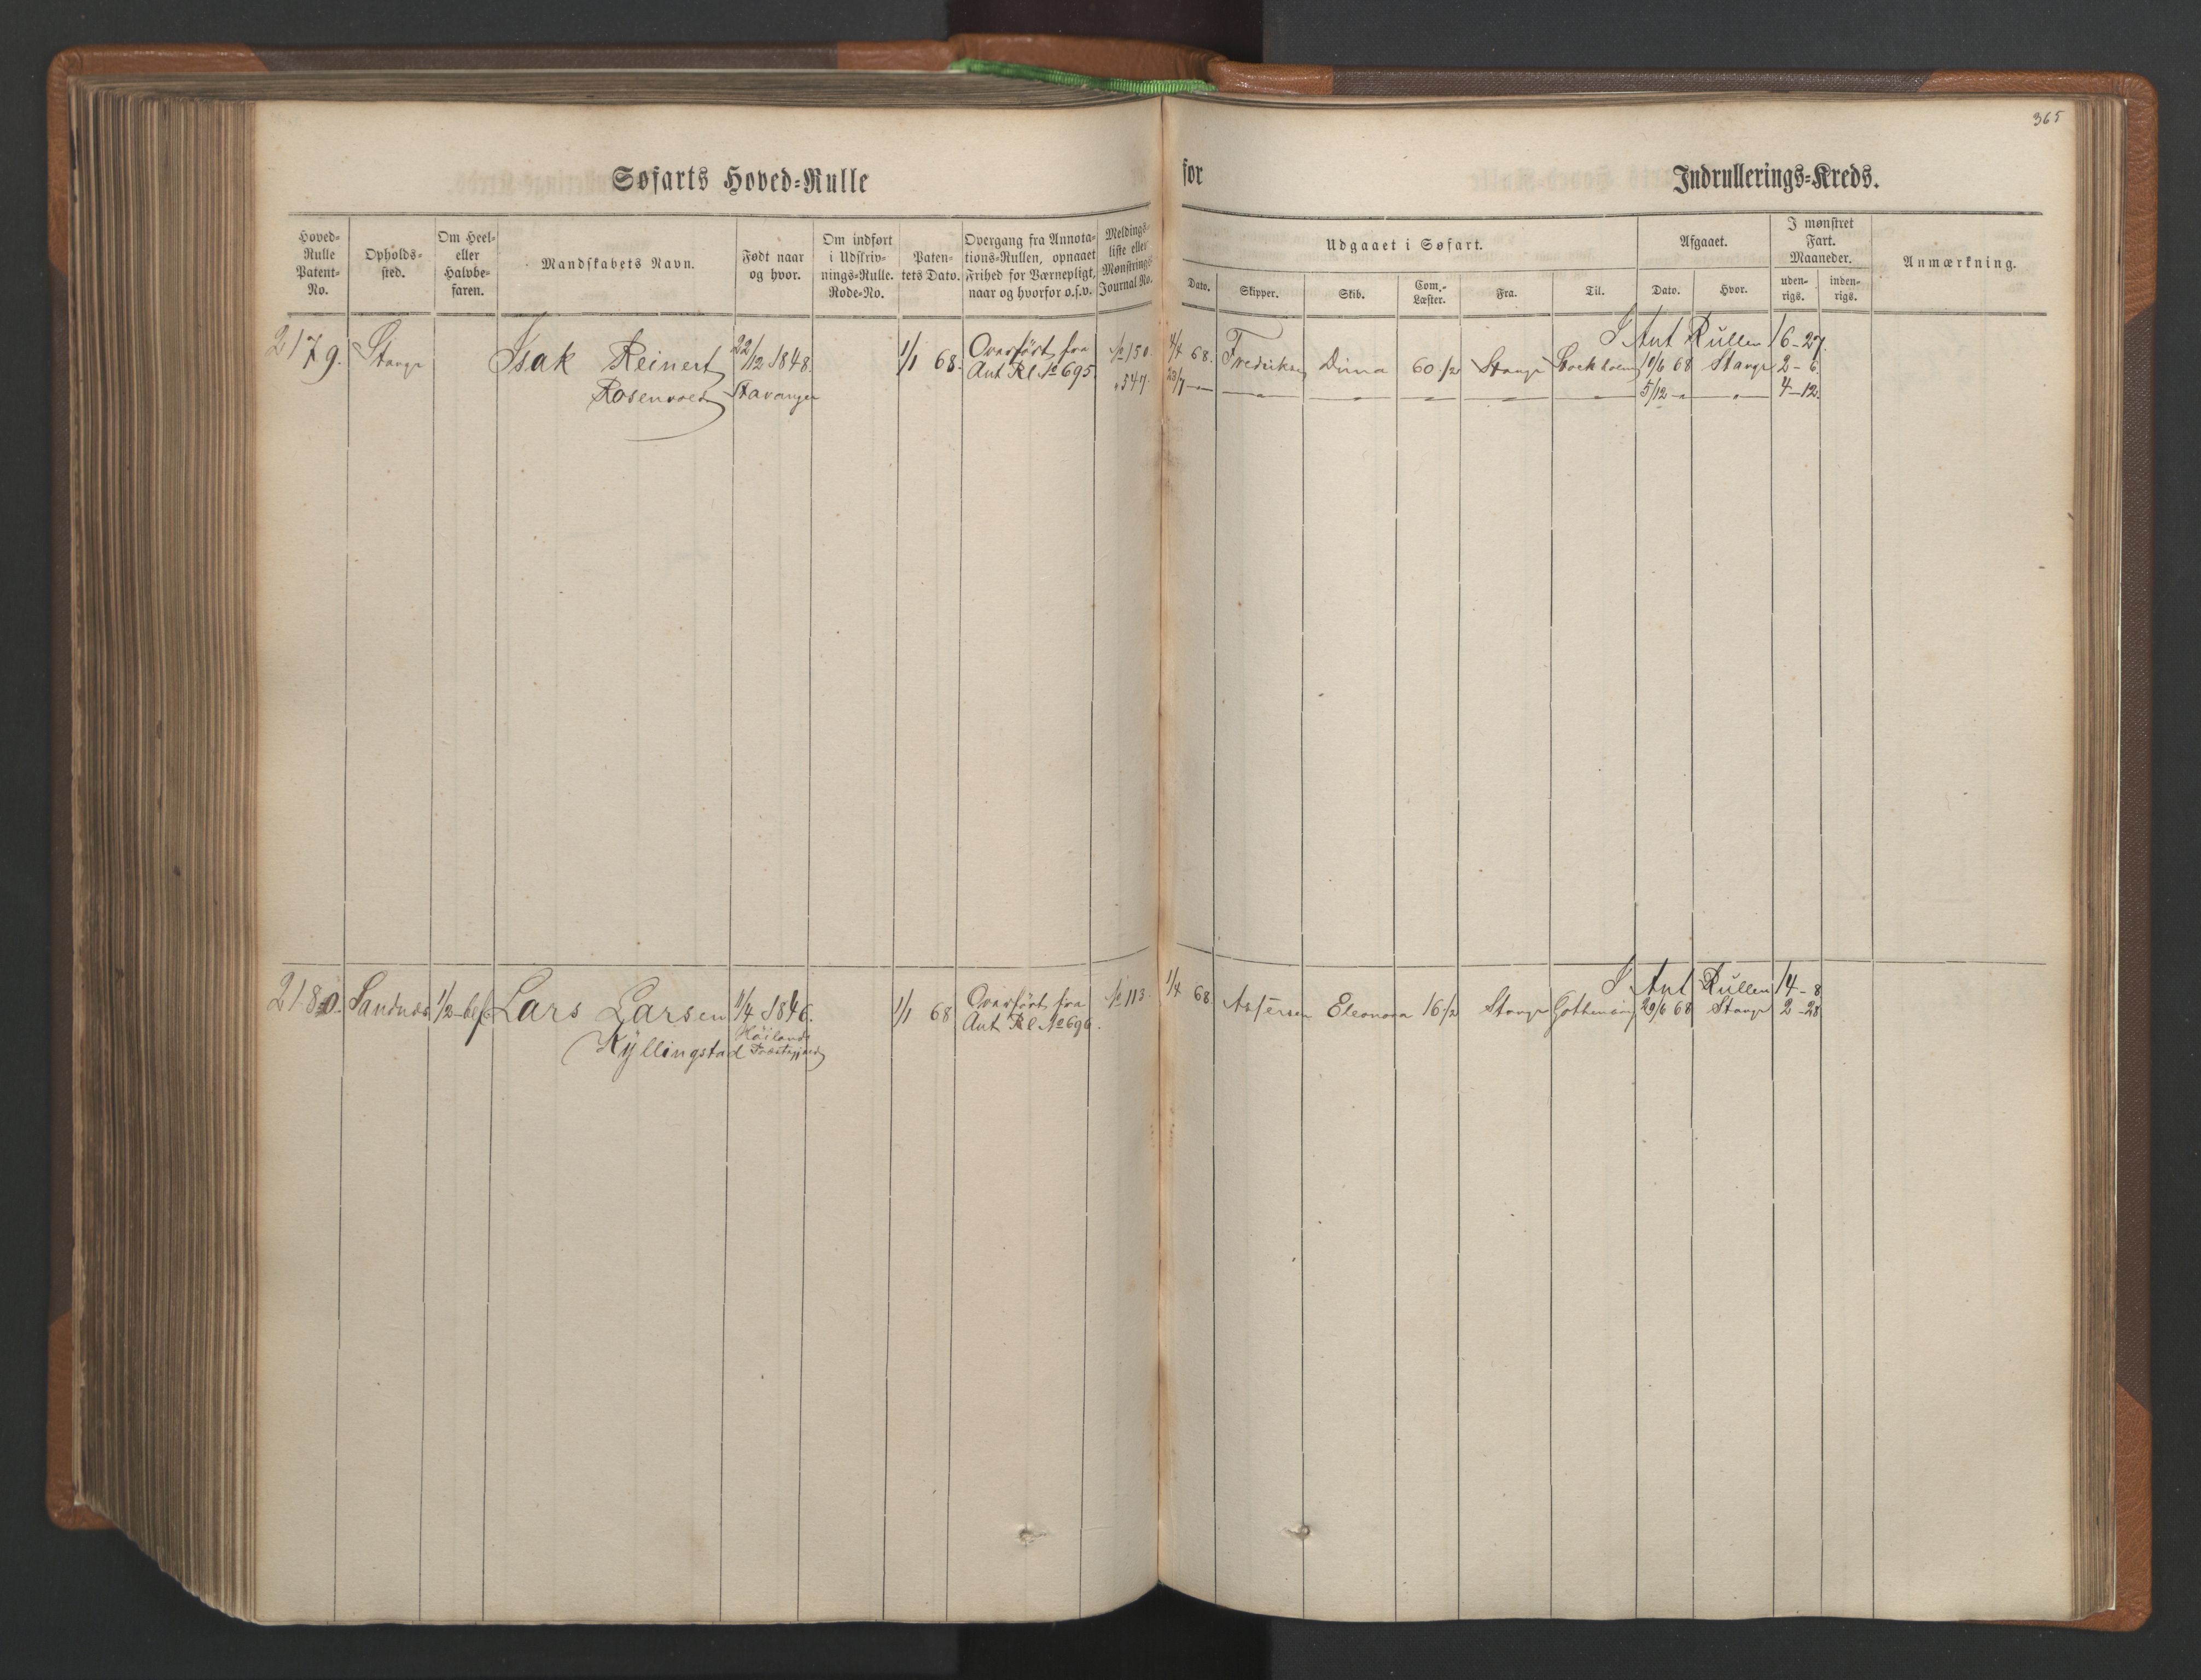 365
Søfarts Hoved=Rulle for Indrullerings=Kreds.
Hoved=Rulle Patent=No.
Opholds=sted.
Om Heel= eller Halvbe=faren.
Mandskabets Navn.
Født naar og hvor.
Om indført i Udskriv=nings=Rulle. Rode=No.
Paten=tets Dato.
Overgang fra Annota=tions=Rullen, opnaaet Frihed for Værnepligt, naar og hvorfor o.s.v.
Meldings=liste eller Mønstrings Journal No.
Udgaaet i Søfart.
Dato. Skipper. Skib. Com.=Læster. Fra. Til.
Afgaaet.
Dato. Hvor.
I mønstret Fart. Maaneder.
uden=rigs. inden=rigs.
Anmærkning.
I Ant Rullen 16-27.
2179. Stavgr Isak Reinert 22/12 1848. 1/1 68. Overført fra № 150. 4/4 68. Fredriksen Dina 60 1/2 Stavgr Stockholm 10/6 68 Stavgr 2-6.
Rosenvold Stavanger Ant Rl № 695. " 547. 23/7 — " — 5/12 — " — 4-12.
I Ant Rullen 14-8
2180. Sandnes 1/2 bef. Lars Larsen 1/4 1846. 1/1 68 Overført fra № 113. 1/4 68 Eleonora 16 1/2 Stavgr Gothenborg 29/6 68 Stavgr 2-28
Kÿllingstad Høilands Præstegjæld Ant Rl № 696.